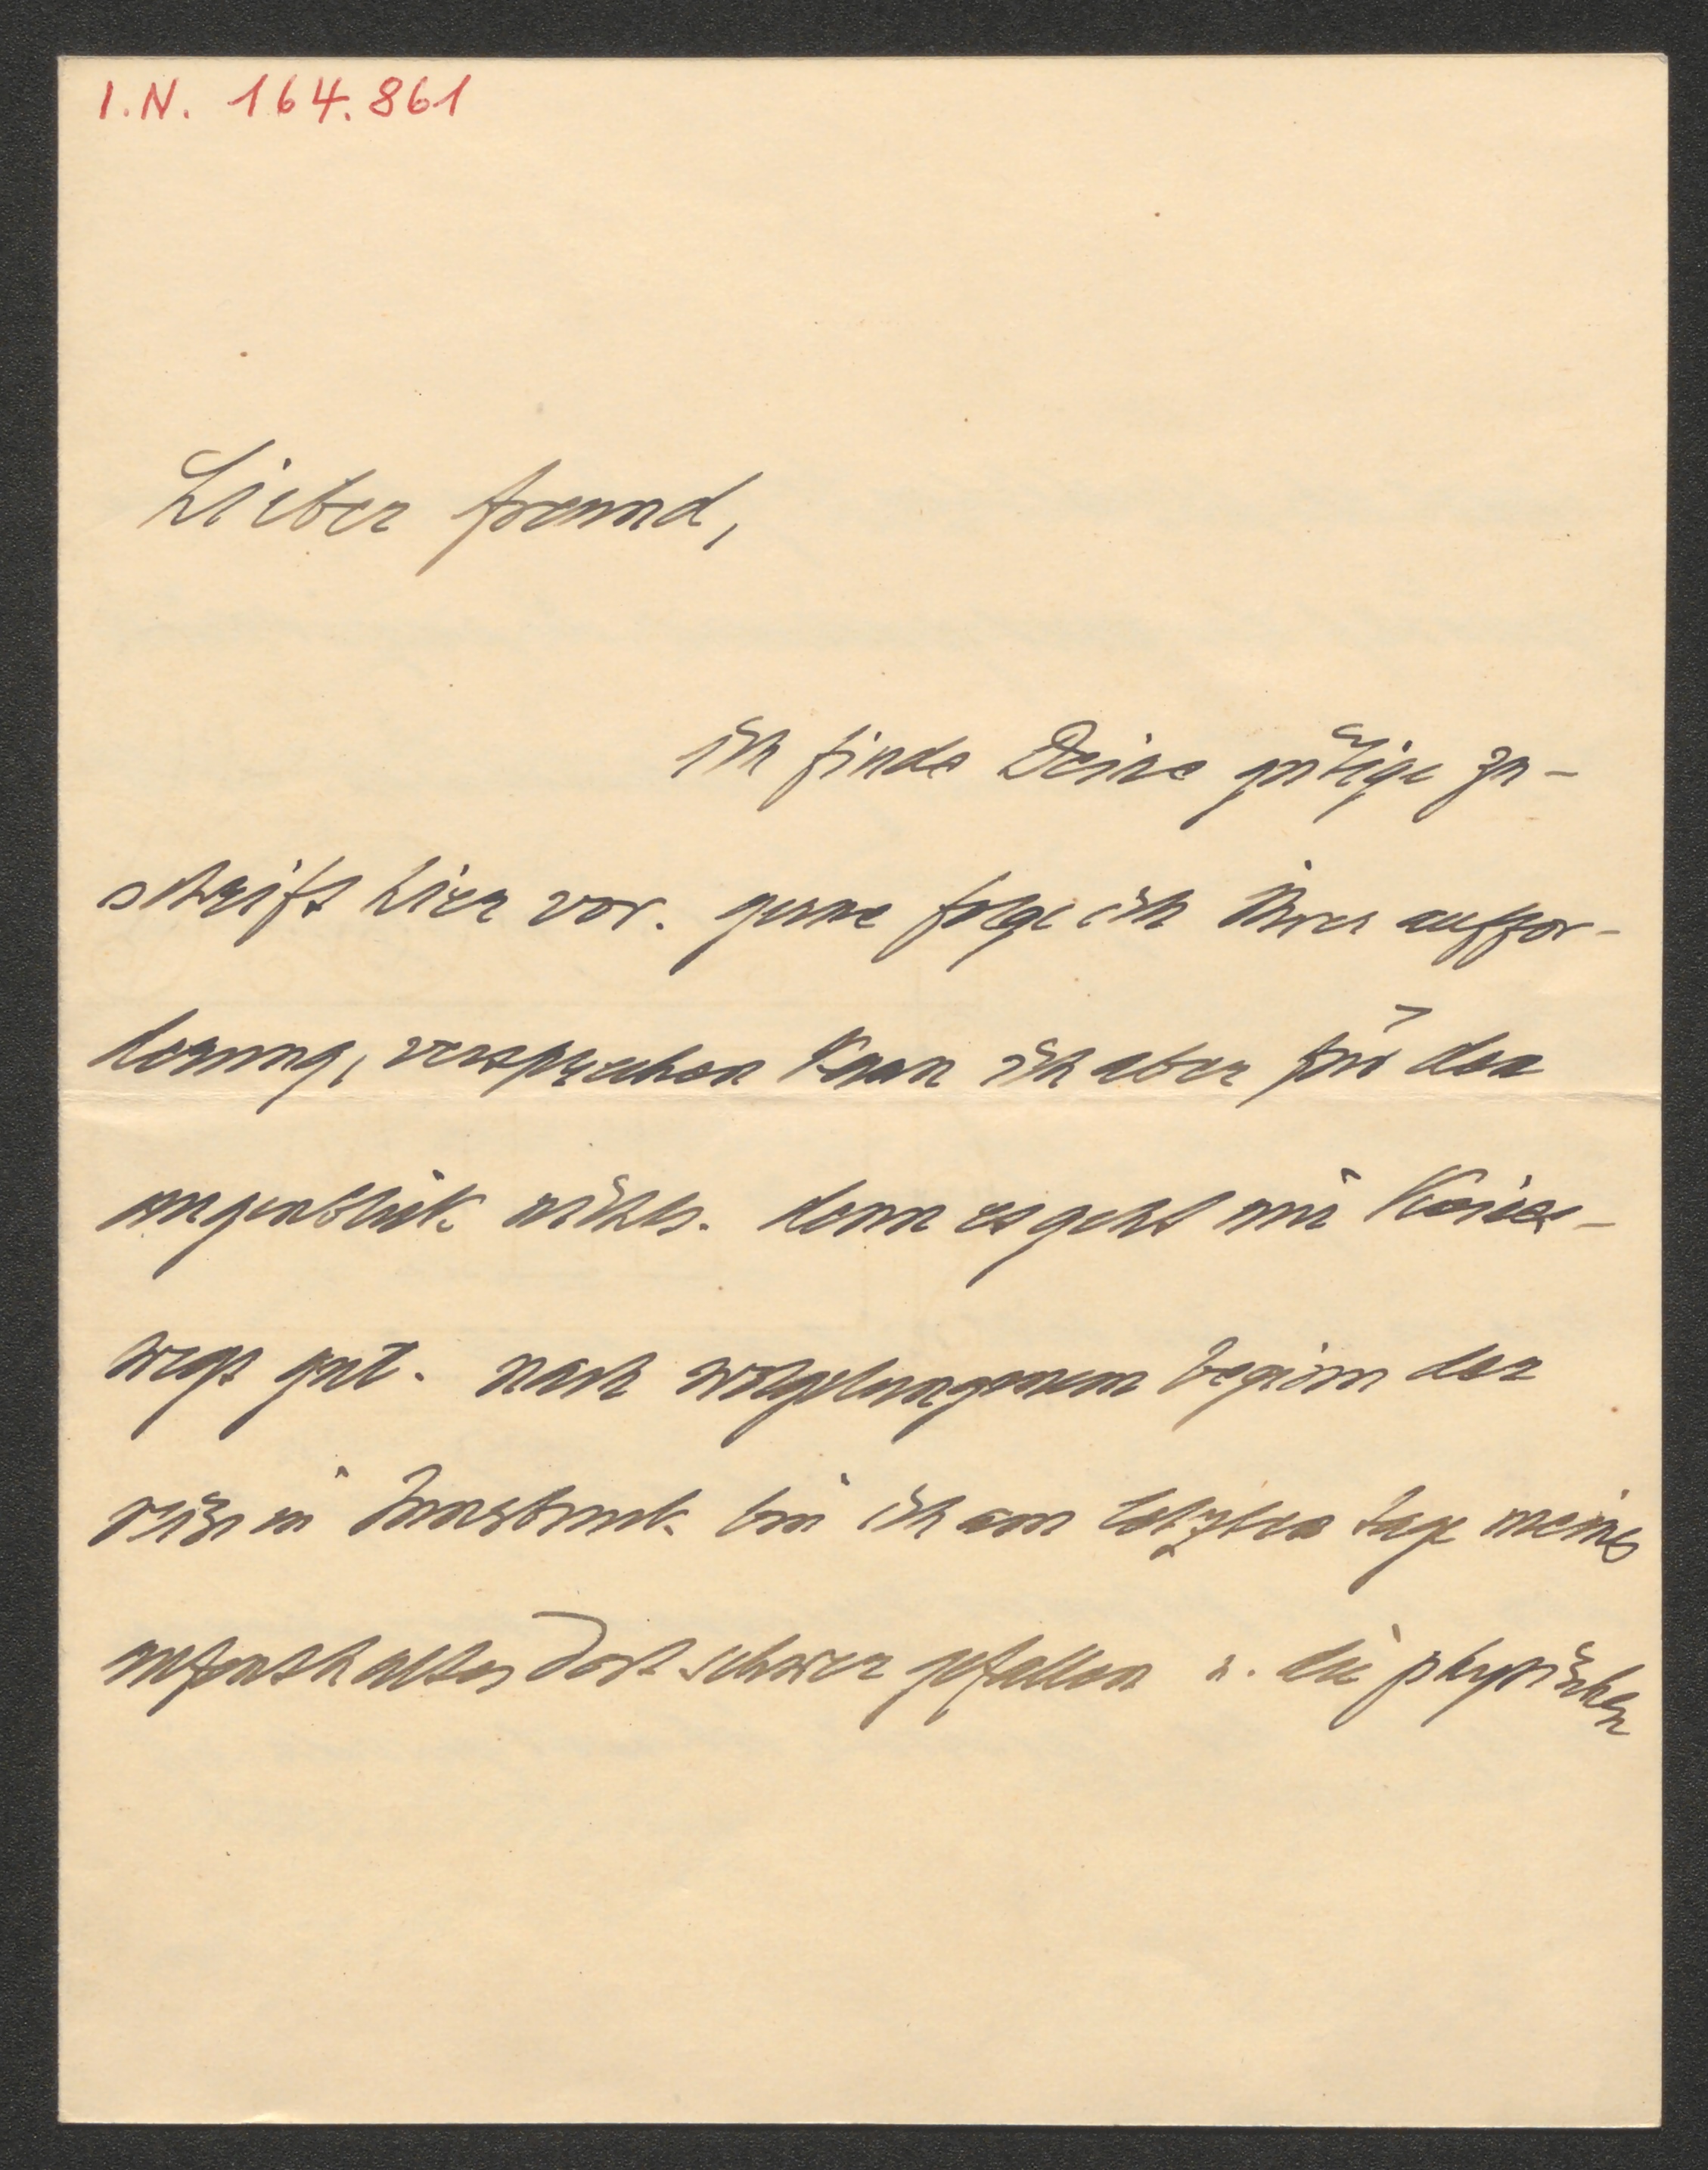 I.N. 164.861
Lieber freund,
ich finde Deine gütige zu-
schrift hier vor. gerne folge ich Ihrer auffor-
derung, versprechen kann ich aber für den
augenblick nichts. denn es geht mir keines-
wegs gut. nach wolgelungenem beginn der
reise in Innsbruck bin ich am letzten tage meines
aufenthaltes dort schwer gefallen u. die physischen